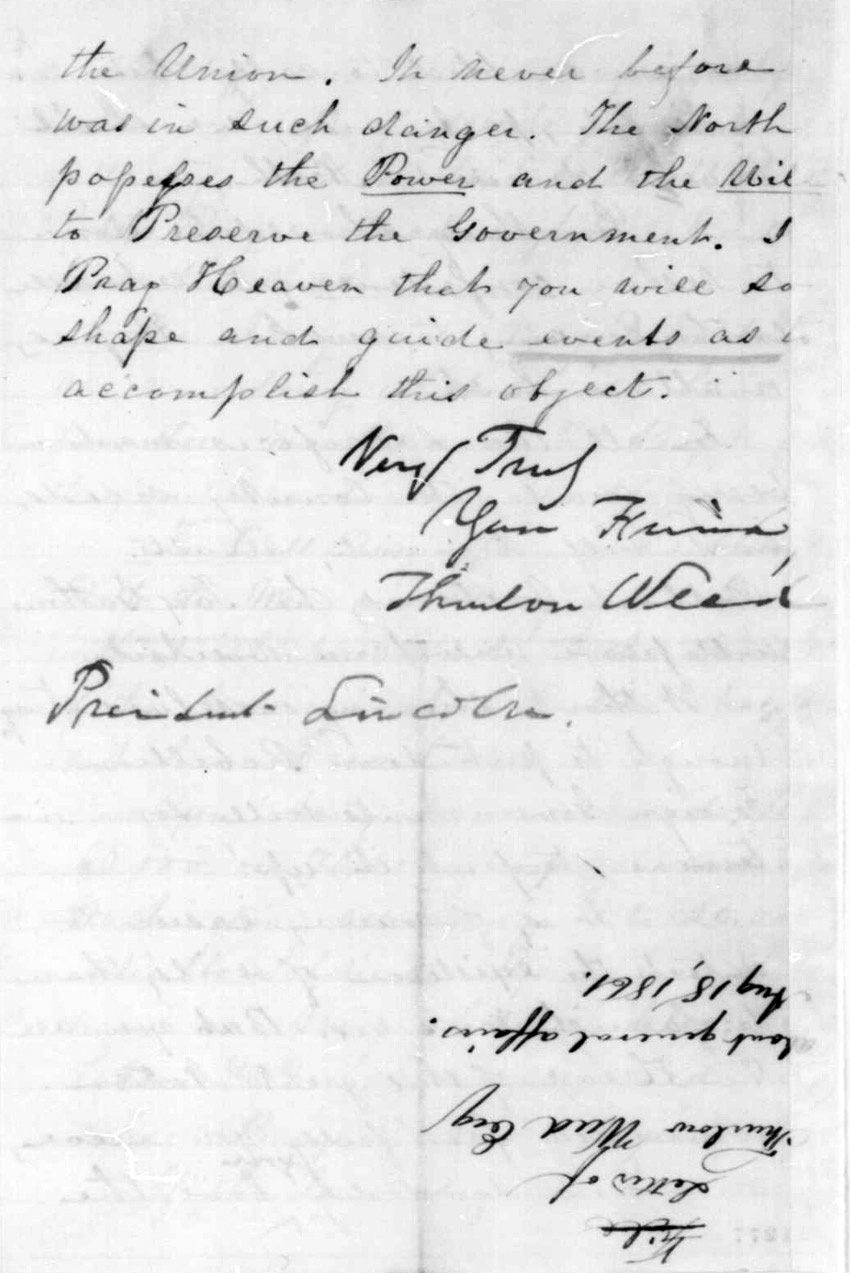 the Union. It never before
was in such danger. The North
possesses the Power and the Wil
to Preserve the Government. I
Pray Heaven that you will so
shape and guide events as
accomplish this object.
Very Truly
Your Friend,
Thurlow Weed
President Lincoln.
File
Letter of
Thurlow Weed Esq
bout general affairs.
Aug 18, 1861.